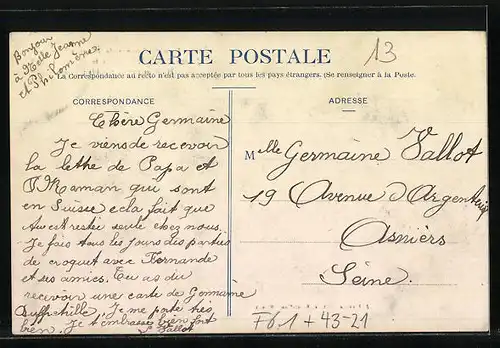 Bonjour
à Melle Jeanne
et Philomène
13
CARTE POSTALE
La Correspondance au recto n'est pas acceptée par tous les pays étrangers. (Se renseigner à la Poste.
CORRESPONDANCE
Chère Germaine
Je viens de recevoir
la lettre de Papa et
Maman qui sont
en Suisse cela fait que
tu est resté seule chez nous.
Je fais tous les jours des parties
de croquet avec Fernande
et ses amies. Tu as du
recevoir une carte de Germaine
Je me porte très
bien. Je t'embrasse bien fort
Vallot
ADRESSE
Mlle Germaine Vallot
19 Avenue d'Argenteuil
Asnièrs
Seine.
F6,1 + 43-21